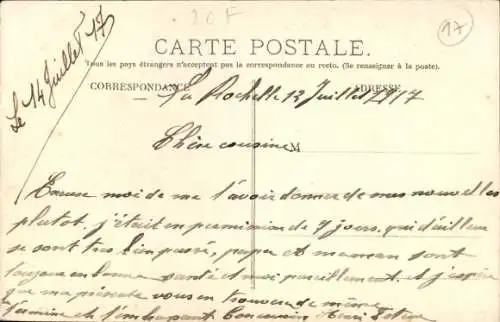 20F
17
Le 14 Juillet 17
CARTE POSTALE.
Tous les pays étrangers n'acceptent pas la correspondance au recto. (Se renseigner à la poste).
CORRESPONDANCE
ADRESSE
La Rochelle 12 Juillet 1917
Chère cousine
M
Excuse moi de ne t'avoir donner de mes nouvelles
plutot. j'était en permission de 7 jours. qui d'ailleur
se sont tres bien passé, papa et maman sont
toujours en bonne santé et moi pareillement. et j'espère
que ma présente vous en trouvera de même
Termine en t'embrassant Ton cousin Henri